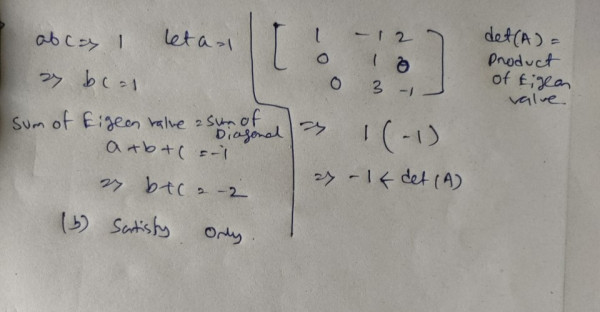 abc => 1 let a = 1
=> bc = 1
Sum of Eigen value = sum of Diagonal
a + b + c = -1
=> b + c = -2
(b) Satisfy Only.
1 -1 2
0 1 0
0 3 -1
=> 1(-1)
=> -1 ← det(A)
det(A) =
Product
of Eigen
value.